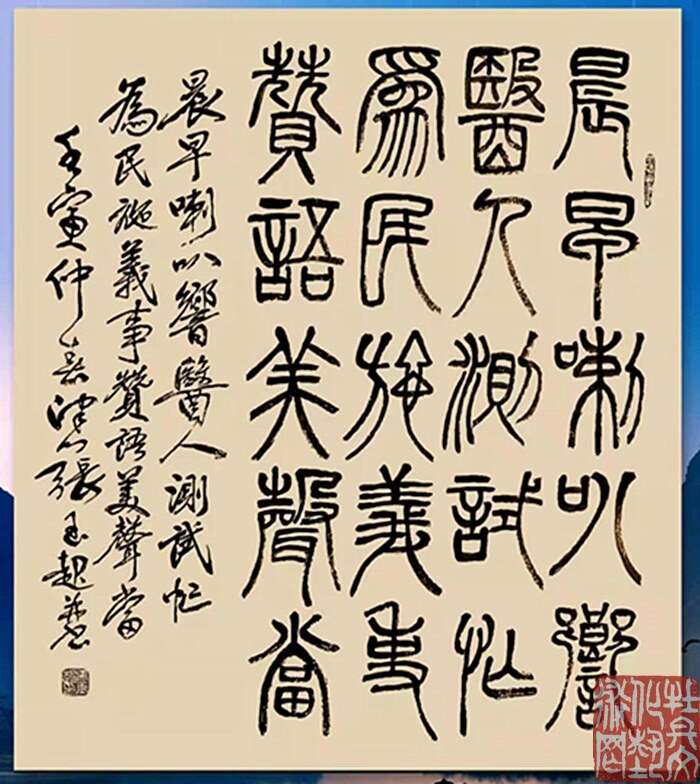 晨早喇叭響
醫人測試忙
為民施義事
贊語美聲當
晨早喇叭響醫人測試忙
為民施義事贊語美聲當
壬寅仲張玉起